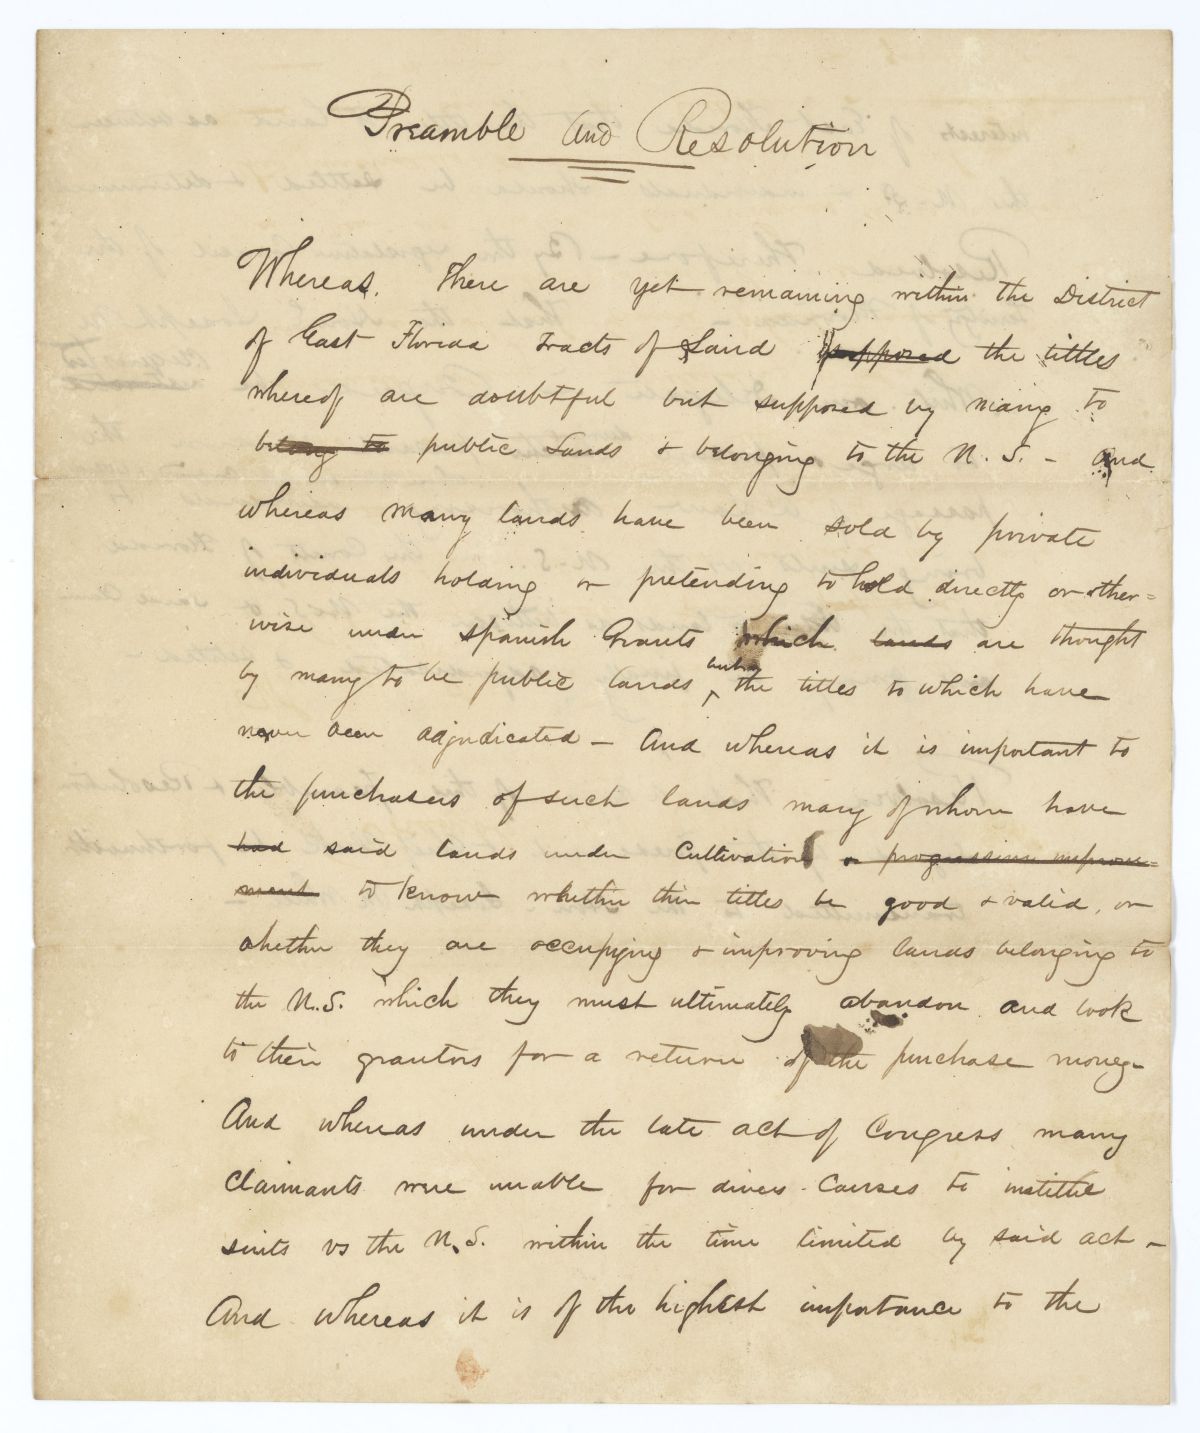 Preamble and Resolution
Whereas. There are yet remaining within the District
of East Florida tracts of Land supposed the tittles
whereof are doubtful but supposed by many to
belong to public Lands & belonging to the U. S. - and
whereas many lands have been sold by private
individuals holding or pretending to hold directly or other=
wise under Spanish Grants which lands are thought
by many to be public lands the titles to which have
never been adjudicated - And whereas it is important to
the purchasers of such lands many of whom have
had said lands under Cultivation or progressive improve=
ment to know whether their titles be good & valid, or
whether they are occupying & improving lands belonging to
the U.S. which they must ultimately abandon and look
to their grantors for a return of the purchase money-
And whereas under the late act of Congress many
Claimants were unable for divers Causes to institute
suits vs the U.S. within the time limited by said act -
And whereas it is of the highest importance to the